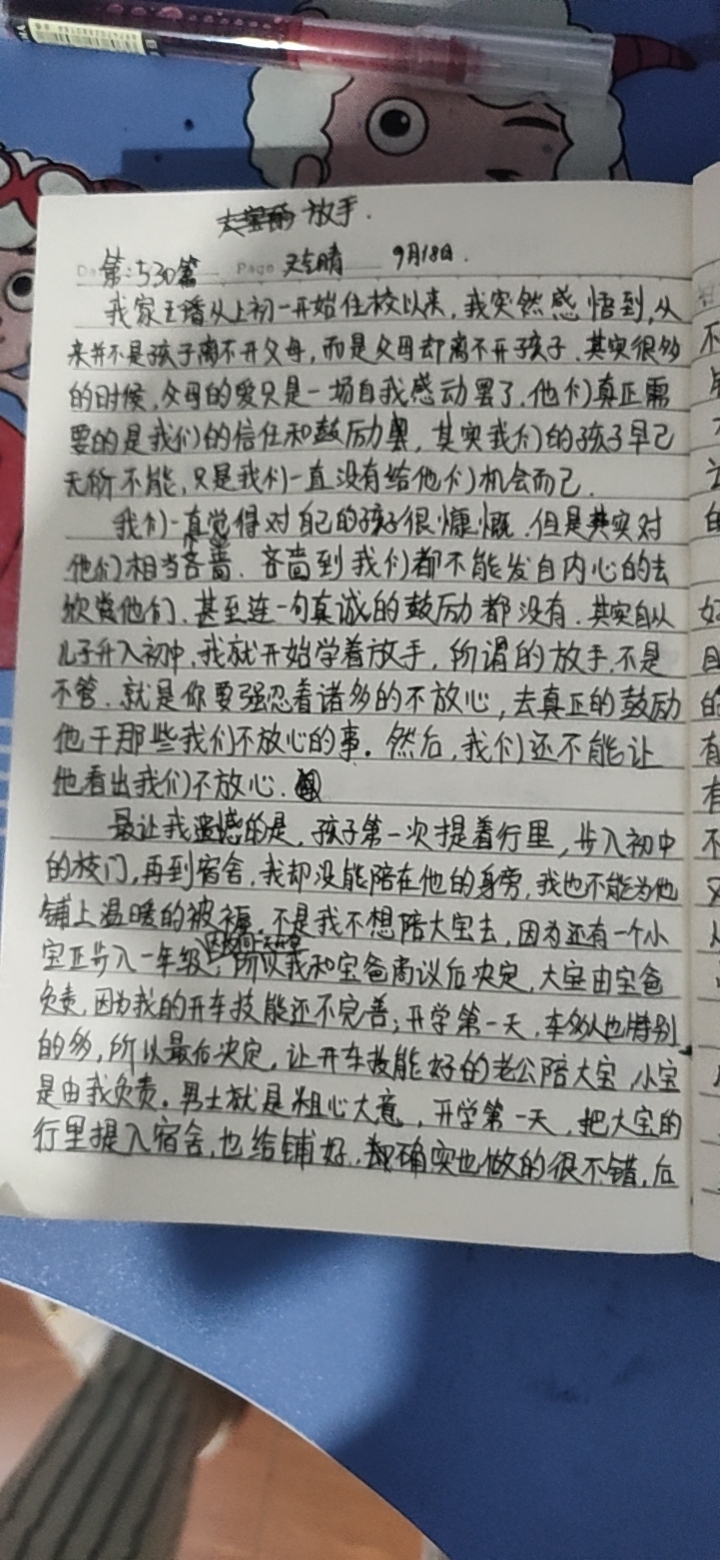 放手.
第:530篇 Page 晴 9月18日.
我家王璠从上初一开始住校以来,我突然感悟到,从
来并不是孩子离不开父母,而是父母却离不开孩子.其实很多
的时候,父母的爱只是一场自我感动罢了.他们真正需
要的是我们的信任和鼓励,其实我们的孩子早已
无所不能,只是我们一直没有给他们机会而已.
我们一直觉得对自己的孩子很慷慨.但是其实对
他们相当吝啬.吝啬到我们都不能发自内心的去
欣赏他们.甚至连一句真诚的鼓励都没有.其实自从
儿子升入初中,我就开始学着放手,所谓的放手,不是
不管.就是你要强忍着诸多的不放心,去真正的鼓励
他干那些我们不放心的事.然后,我们还不能让
他看出我们不放心.
最让我遗憾的是,孩子第一次提着行里,步入初中
的校门,再到宿舍,我却没能陪在他的身旁,我也不能为他
铺上温暖的被褥.不是我不想陪大宝去,因为还有一个小
宝正步入一年级,所以我和宝爸商议后决定,大宝由宝爸
负责,因为我的开车技能还不完善;开学第一天,车多人也特别
的多,所以最后决定,让开车技能好的老公陪大宝,小宝
是由我负责.男士就是粗心大意,开学第一天,把大宝的
行里提入宿舍,也给铺好.确实也做的很不错,后